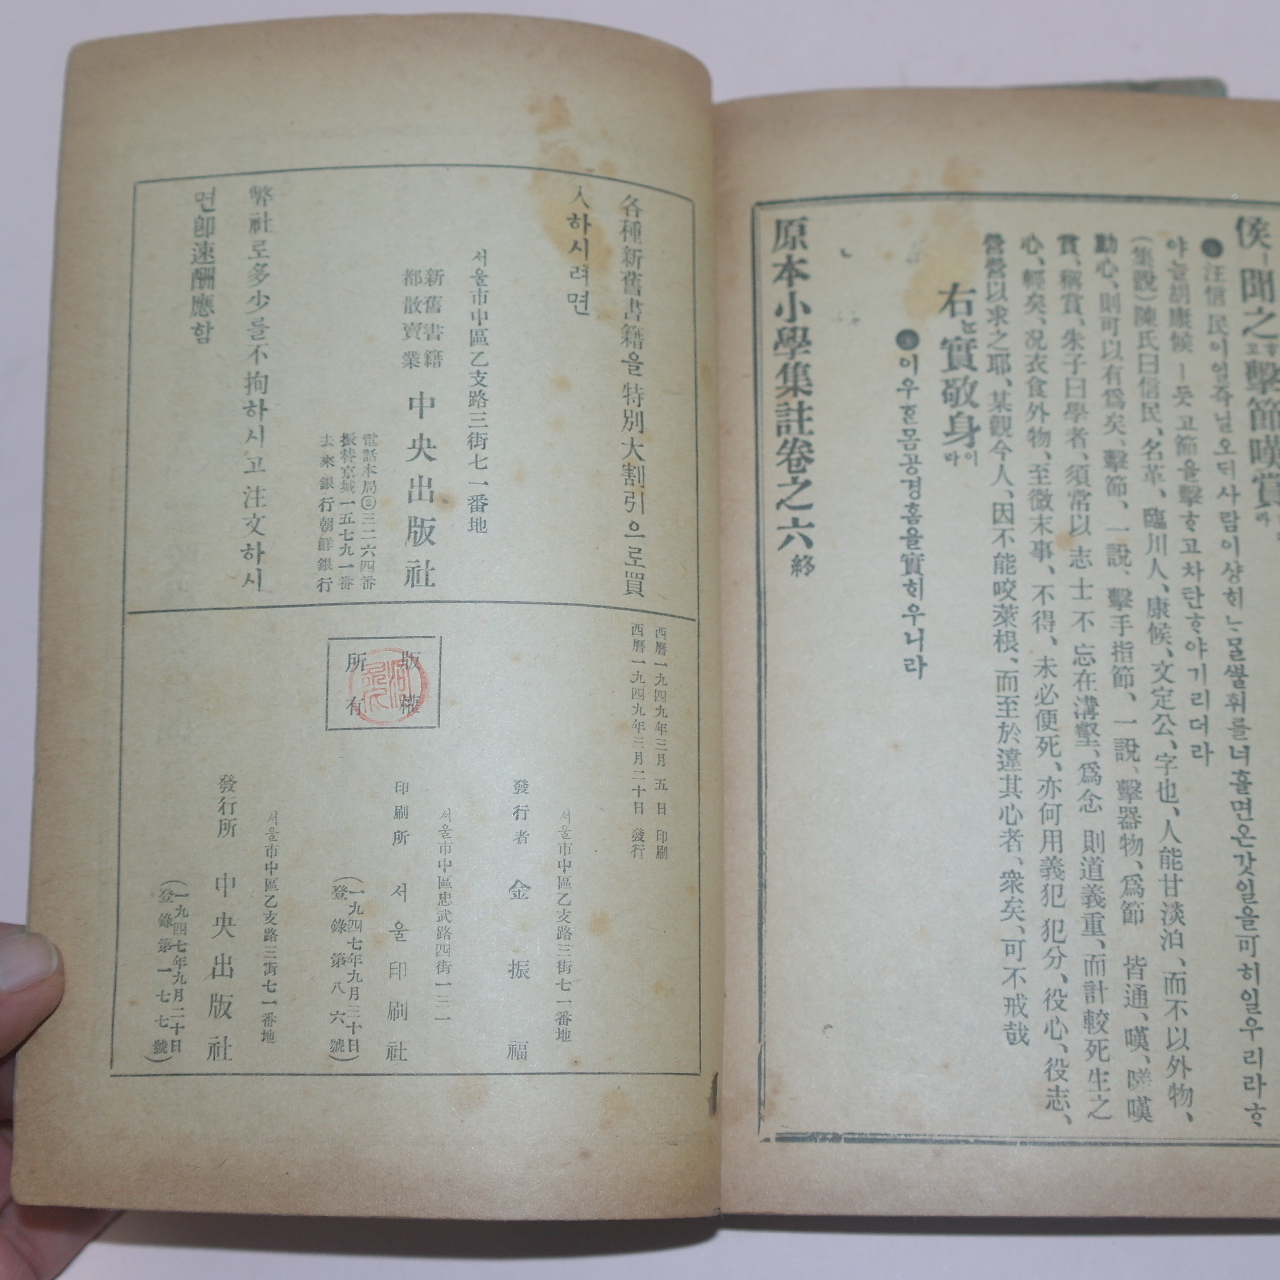 侯ㅣ聞之ᄒᆞ고擊節嘆賞라
汪信民이일즉닐오ᄃᆡ사람이샹ᄒᆡㄴ물쌜휘를너흘면온갓일을可히일우리라ᄒᆞ
야ᄂᆞᆯ胡康候ㅣ듯고節을擊ᄒᆞ고차탄ᄒᆞ야기리더라
(集說)陳氏曰信民、名革、臨川人、康候、文定公、字也、人能甘淡泊、而不以外物、
動心、則可以有爲矣、擊節、一說、擊手指節、一說、擊器物、爲節 皆通、嘆、嗟嘆
賞、稱賞、朱子曰學者、須常以 志士不 忘在溝壑、爲念 則道義重、而計較死生之
心、輕矣、况衣食外物、至微末事、不得、未必便死、亦何用義犯 犯分、役心、役志、
營營以求之耶、某觀今人、因不能咬菜根、而至於違其心者、衆矣、可不戒哉
右ᄂᆞᆫ實敬身이라
이우흔몸공경홈을實히우니라
原本小學集註卷之六 終
各種新舊書籍을 特別大割引으로買
入하시려면
서울市中區乙支路三街七一番地
新舊書籍
都散賣業 中央出版社
電話本局②三二六四番
振替京城一五七九一番
去來銀行朝鮮銀行
弊社로多少를不拘하시고 注文하시
면卽速酬應함
西曆一九四九年三月 五 日 印刷
西曆一九四九年三月二十日 發行
版權
所有
서울市中區乙支路三街七一番地
發行者 金振福
서울市中區忠武路四街一三一
印刷所 서울印刷社
(一九四七年九月三十日
登錄第八六號)
서울市中區乙支路三街七一番地
發行所 中央出版社
(一九四七年九月二十日
登錄第一七七號)